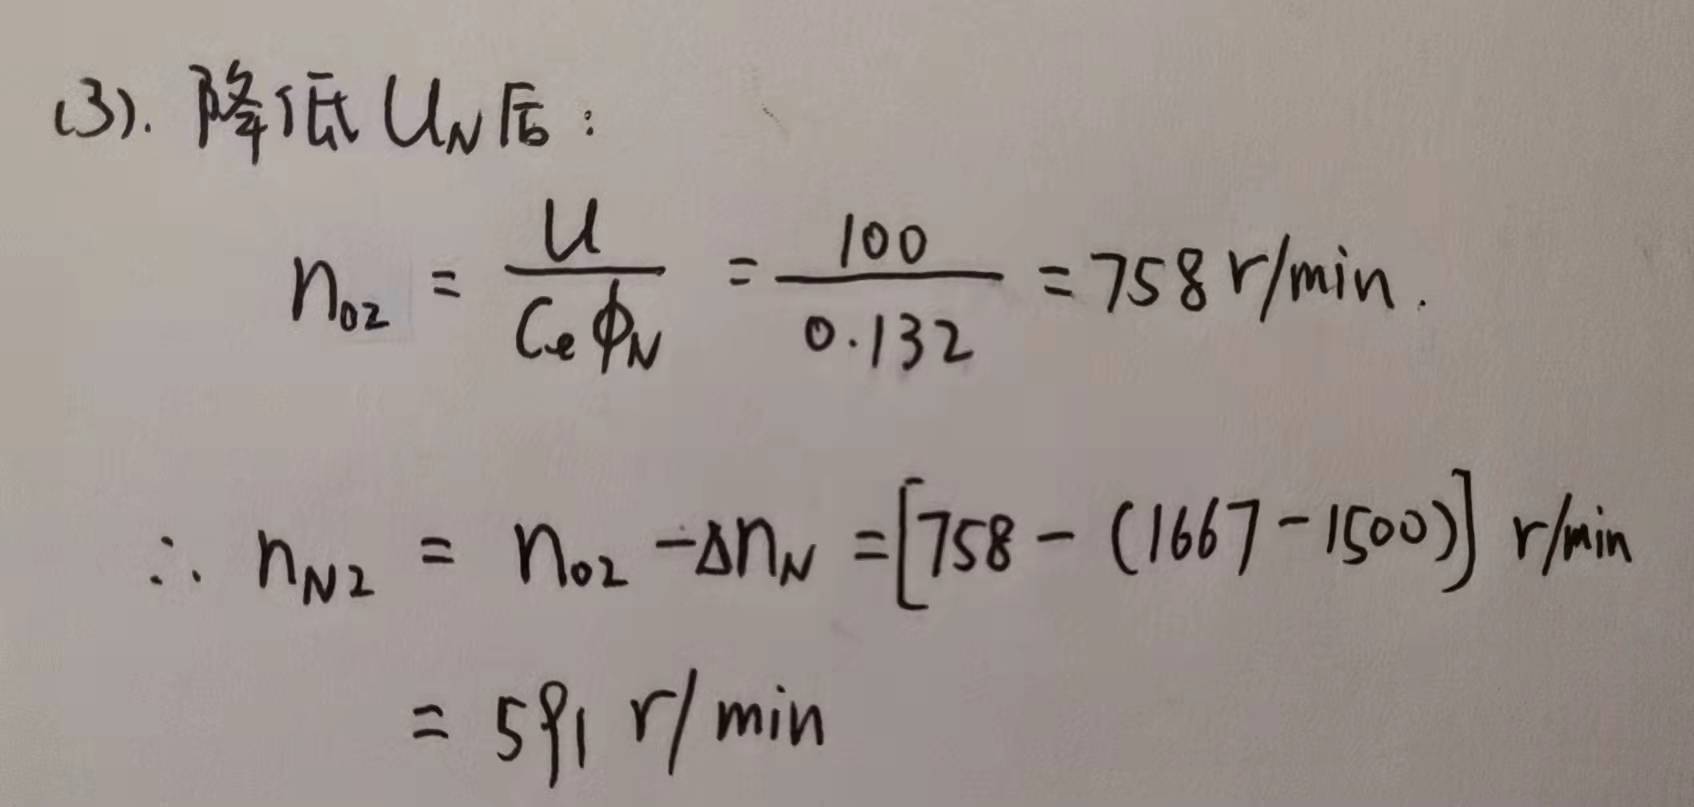 (3). 降低 U_N 后:
n_02 = U / (C_e ϕ_N) = 100 / 0.132 = 758 r/min.
∴ n_N2 = n_02 - Δn_N = [758 - (1667 - 1500)] r/min
= 591 r/min